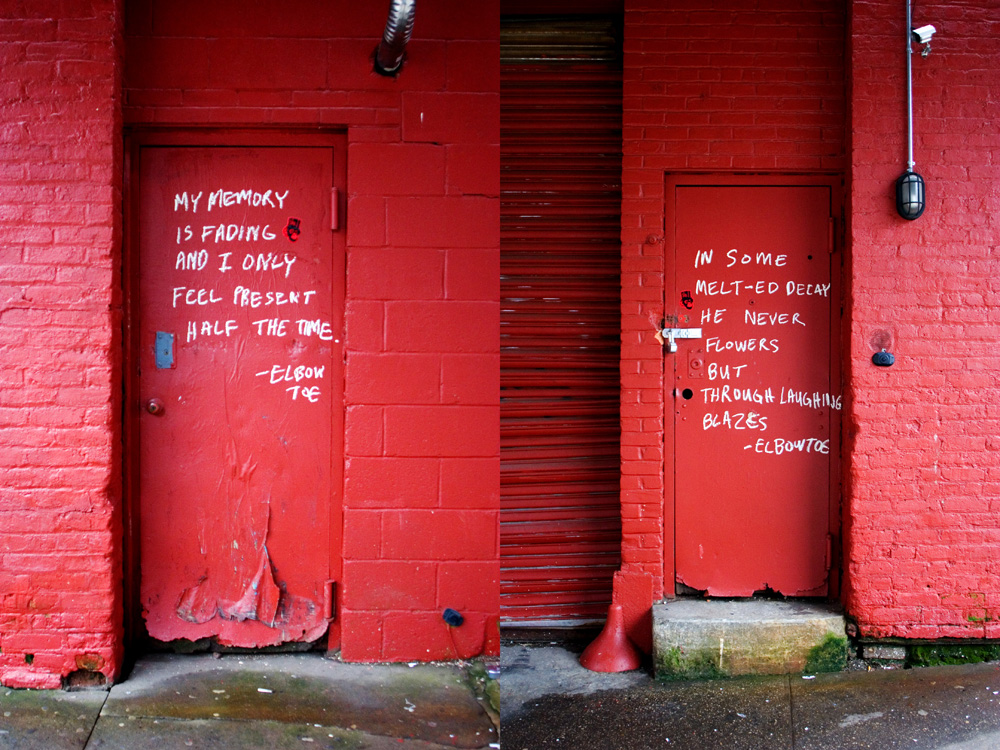 MY MEMORY
IS FADING
AND I ONLY
FEEL PRESENT
HALF THE TIME.
-ELBOW
TOE
IN SOME
MELT-ED DECAY
HE NEVER
FLOWERS
BUT
THROUGH LAUGHING
BLAZES
-ELBOWTOE